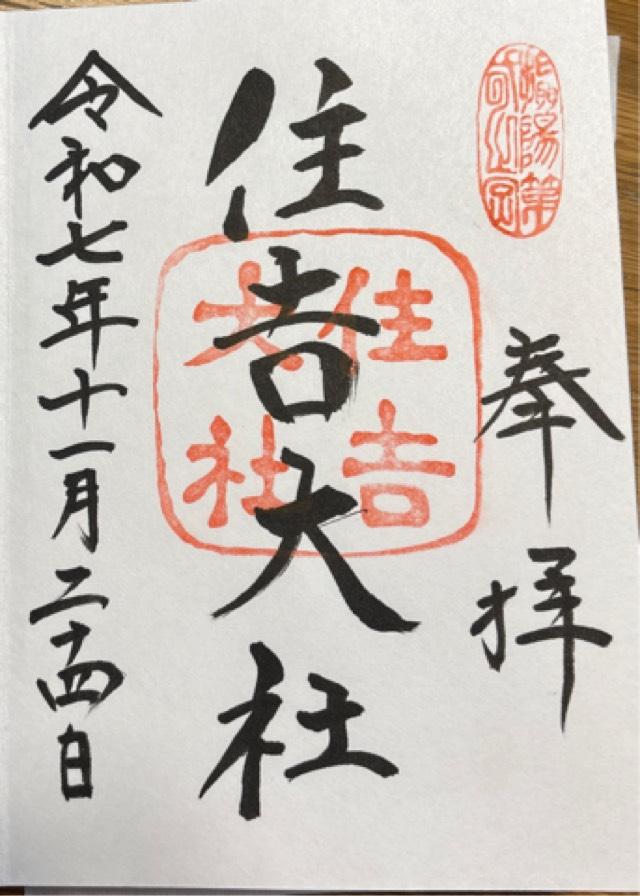 奉拝
住吉大社
住吉
大社
令和七年十一月二十四日